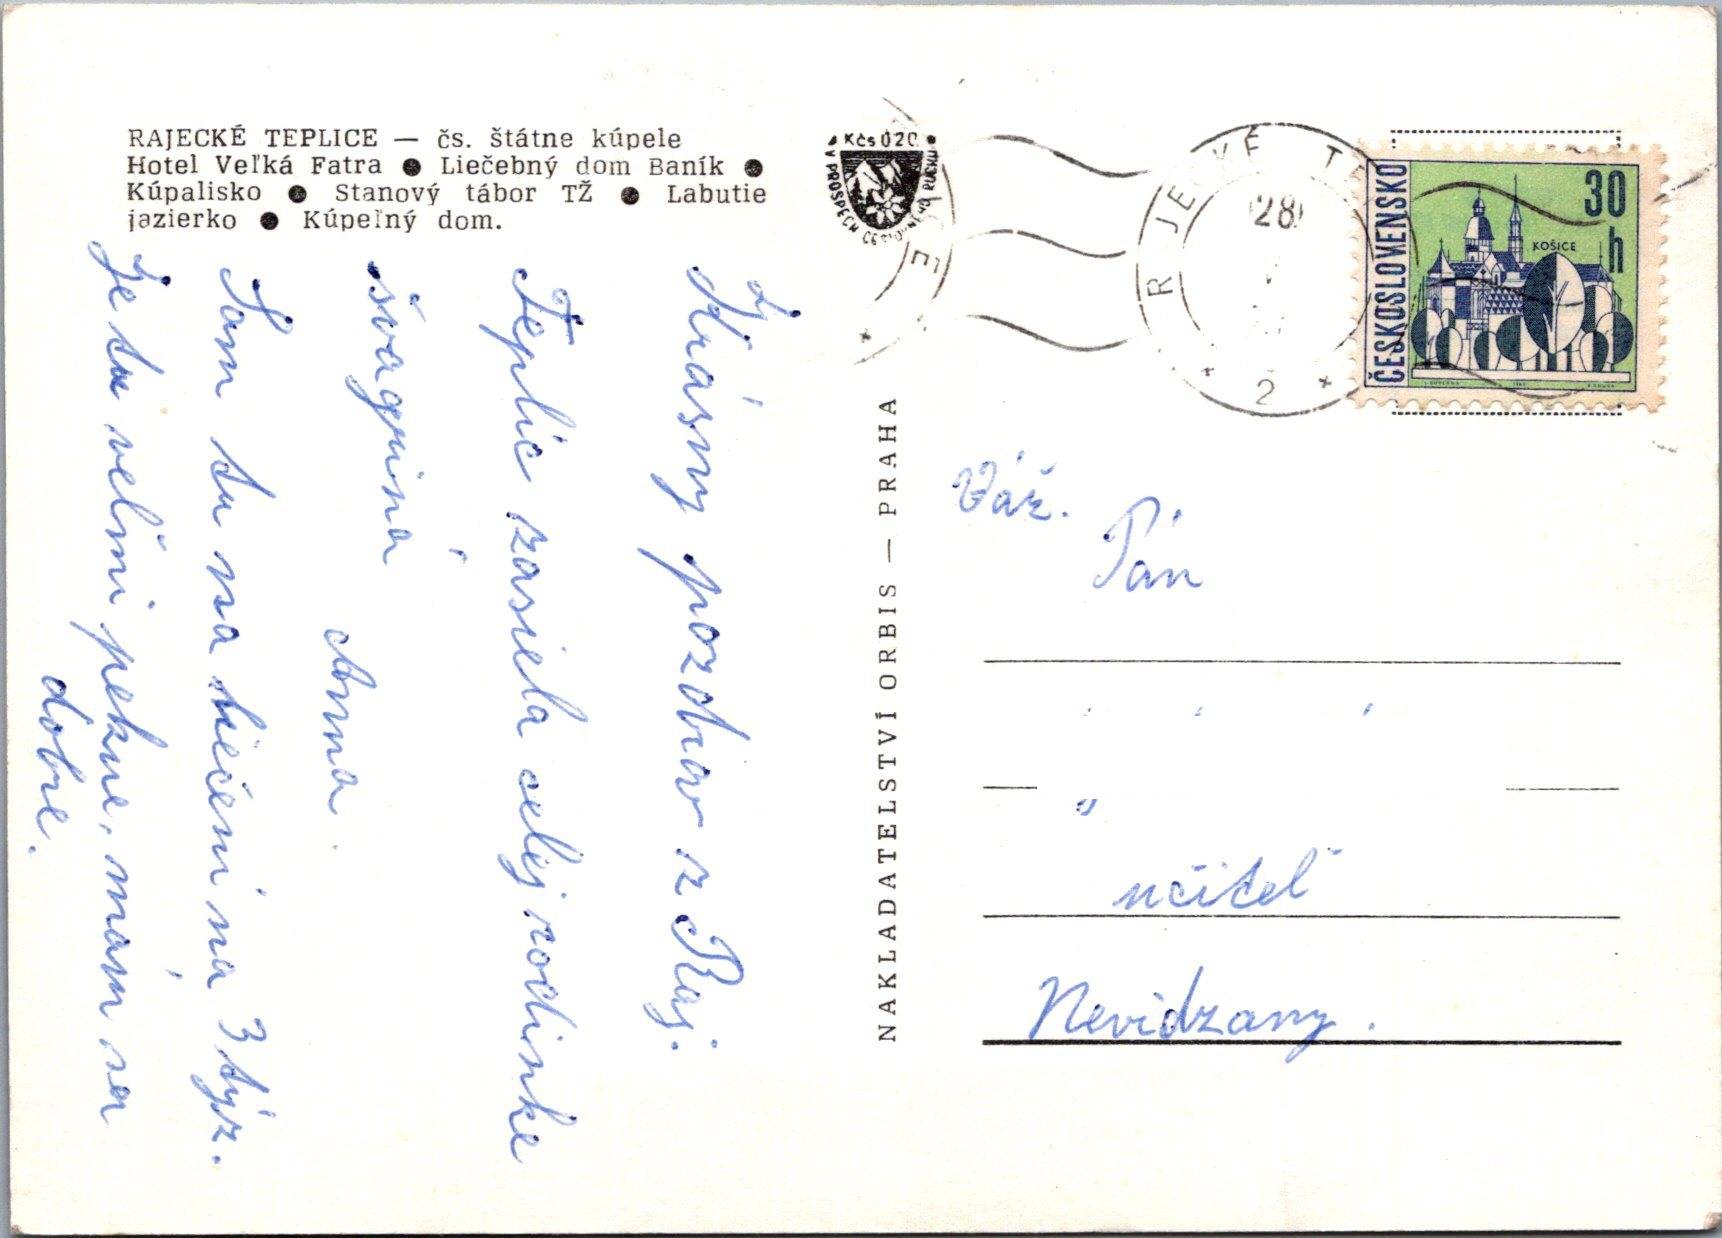 RAJECKÉ TEPLICE — čs. štátne kúpele
Hotel Veľká Fatra ● Liečebný dom Baník ●
Kúpalisko ● Stanový tábor TŽ ● Labutie
jazierko ● Kúpeľný dom.
Kčs 0.20
V PROSPECH CESTOVNÉHO RUCHU
Krásny pozdrav z Raj.
Teplic zasiela celej rodinke
švagriná
Anna.
Som tu na liečení na 3 týž.
Je tu veľmi pekne, mám sa
dobre.
NAKLADATELSTVÍ ORBIS — PRAHA
28
2
ČESKOSLOVENSKO
30
h
KOŠICE
Váž.
Pán
učiteľ
Nevidzany.